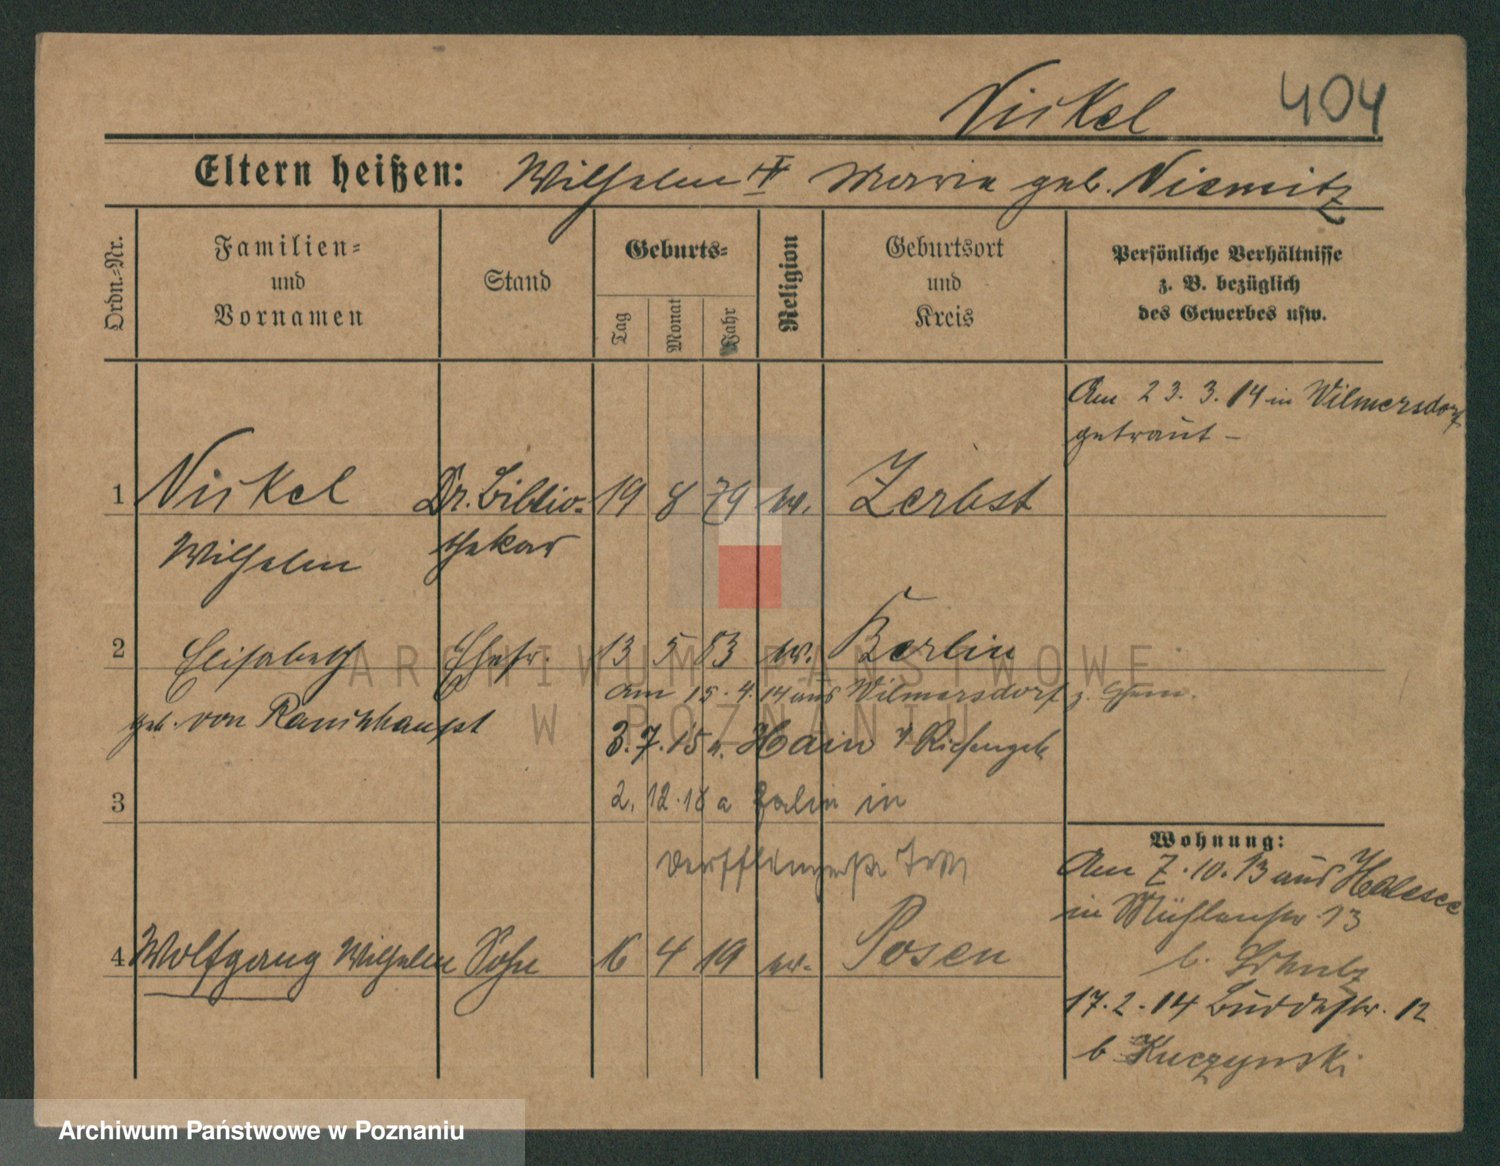 Nickel 404
Eltern heißen: Wilhelm ✝ Marie geb. Niemitz
Ordn.-Nr.
Familien-
und
Vornamen
Stand
Geburts-
Tag
Monat
Jahr
Religion
Geburtsort
und
Kreis
Persönliche Verhältnisse
z. B. bezüglich
des Gewerbes usw.
Am 23.3.14 in Wilmersdorf
getraut –
1 Nickel Dr. Biblio- 19 8 79 ev. Zerbst
Wilhelm thekar
2 Elisabeth Ehefr. 13 5 83 ev. Berlin
Am 15.4.14 aus Wilmersdorf z. Gem.
geb. von Rauchhaupt
3.7.15 n. Hain Riesengeb
3 2.12.18 a in
4 Wolfgang Wilhelm Sohn 16 4 19 ev. Posen
Wohnung:
Am 7.10.13 aus Halesee
in Mühlenstr. 13
b. Schulz
17.2.14 Buddestr. 12
b Kuczynski
ARCHIWUM PAŃSTWOWE
W POZNANIU
Archiwum Państwowe w Poznaniu